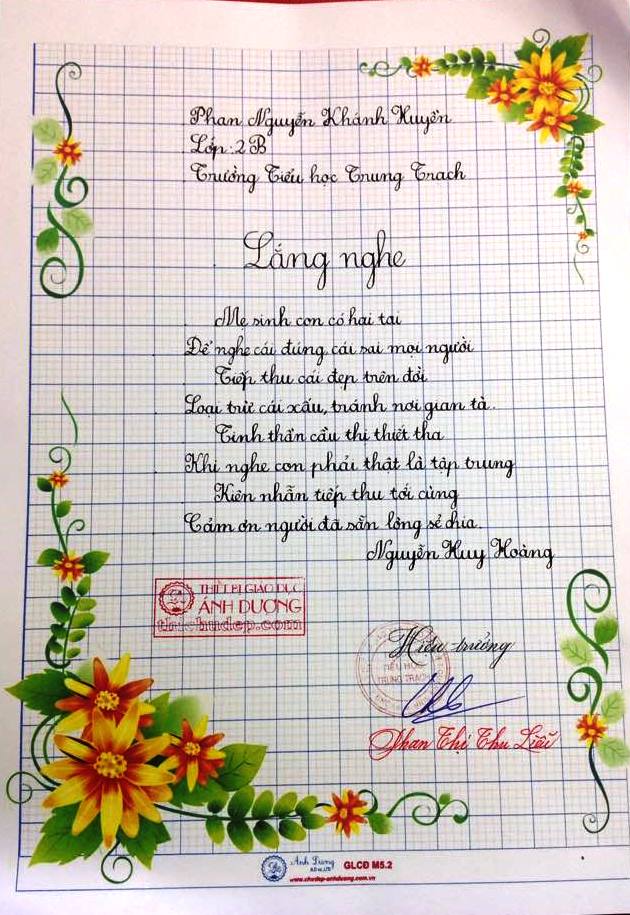 Phan Nguyễn Khánh Huyền
Lớp: 2B
Trường Tiểu học Trung Trạch
Lắng nghe
Mẹ sinh con có hai tai
Để nghe cái đúng, cái sai mọi người
Tiếp thu cái đẹp trên đời
Loại trừ cái xấu, tránh nơi gian tà.
Tinh thần cầu thị thiết tha
Khi nghe con phải thật là tập trung
Kiên nhẫn tiếp thu tới cùng
Cảm ơn người đã sẵn lòng sẻ chia.
Nguyễn Huy Hoàng
THIẾT BỊ GIÁO DỤC
ÁNH DƯƠNG
Hiệu trưởng
TIỂU HỌC
TRUNG TRẠCH
Phan Thị Thu
Ánh Dương GLCĐ M5.2
www.chudep-anhduong.com.vn